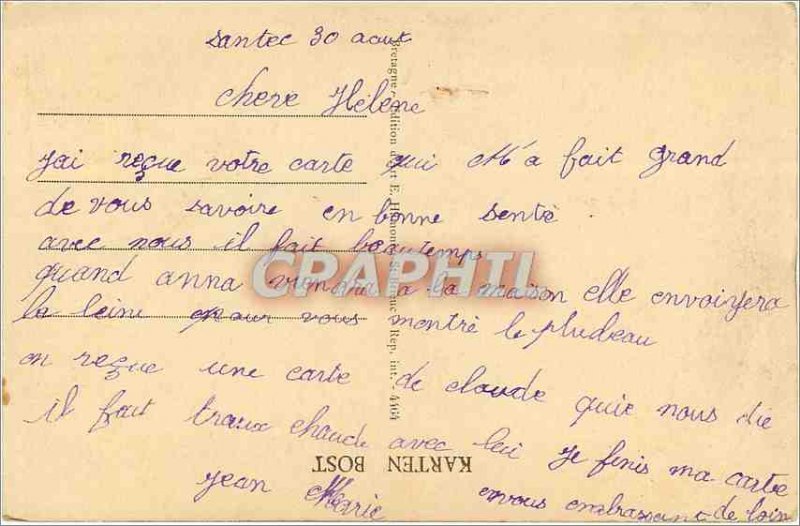 santec 30 aout
chere Hélène
J'ai reçue votre carte qui M'a fait grand
de vous savoire en bonne senté
avec nous il fait beautemps
quand anna a la maison elle envoiyera
la leine pour vous montré le
on reçue une carte de claude quie nous die
il fait traux chaude avec lui Je finis ma carte
Jean Marie envous embrassant de loin
CRAPHIL
Bretagne. Edition d'Art E. Rep. int. 4464
KARTEN BOST